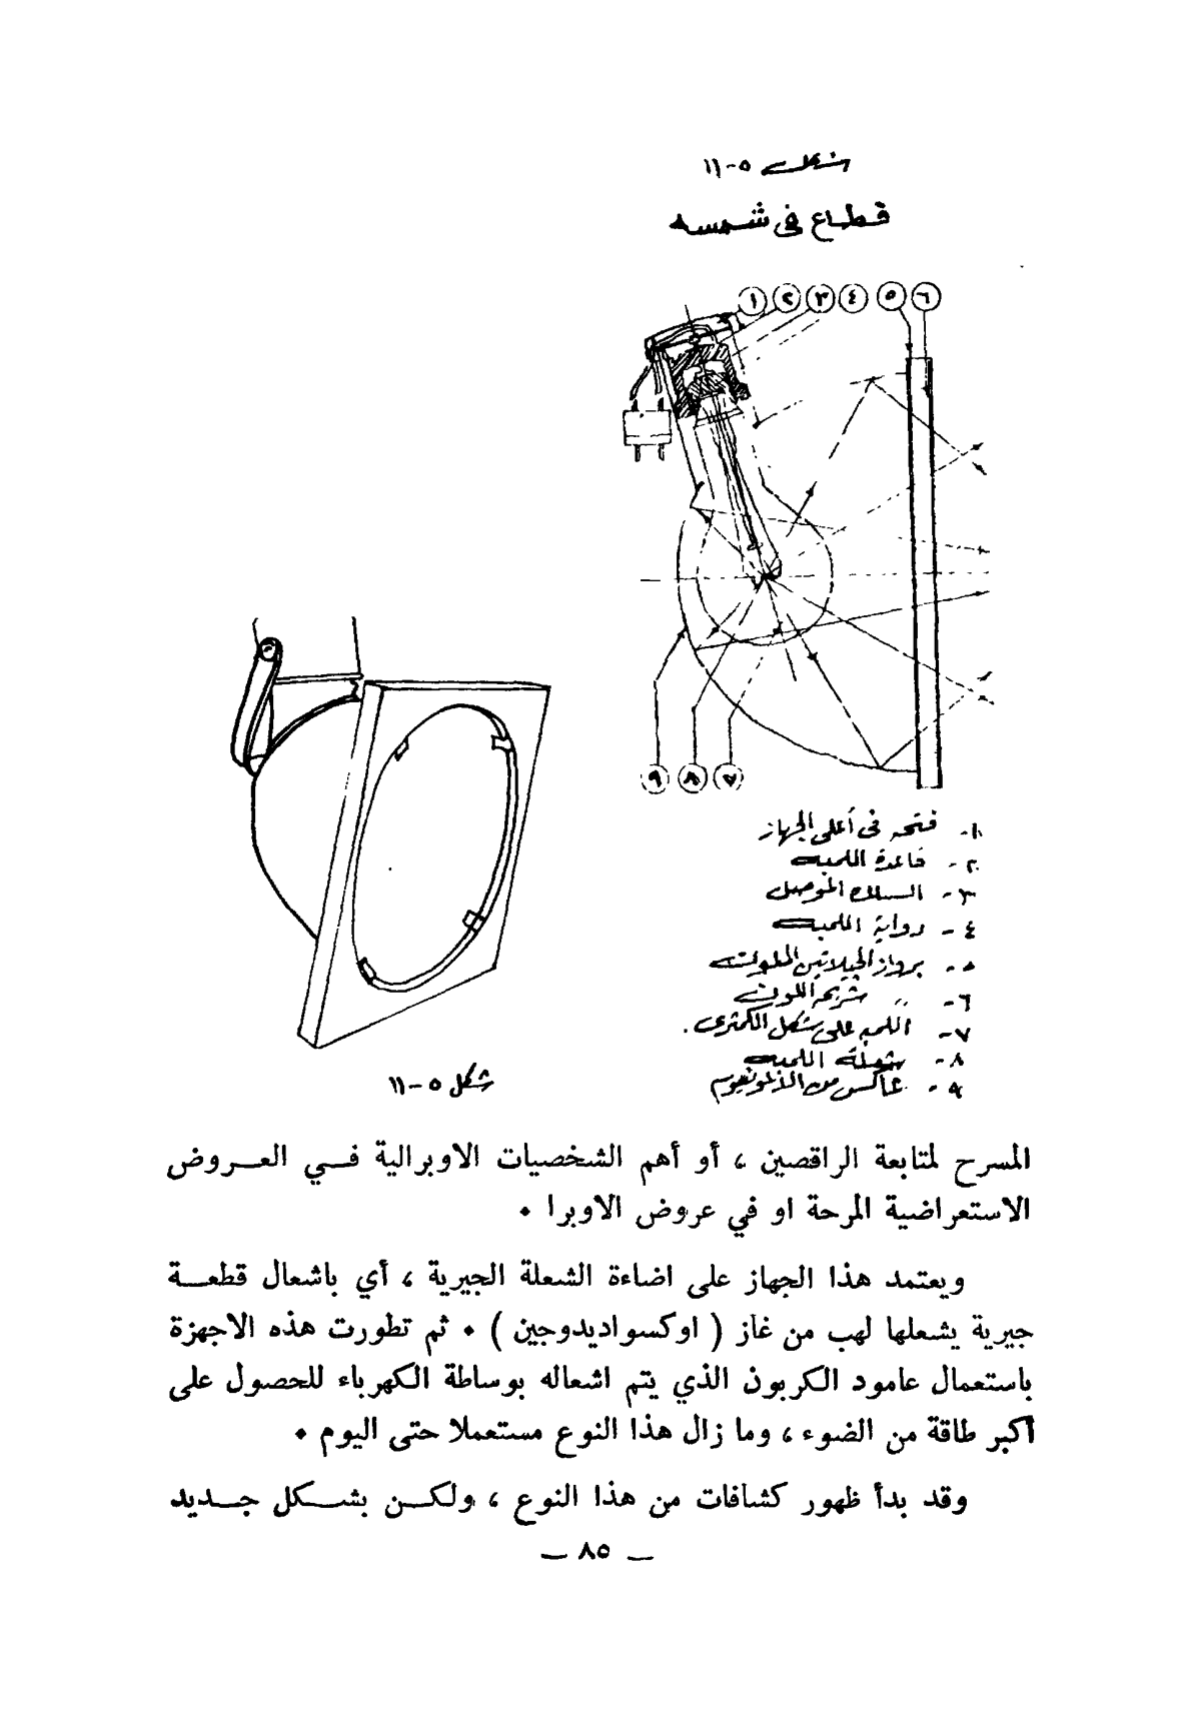 شكل ٥-١١
قطاع فى شمسه
١ ٢ ٣ ٤ ٥ ٦
٩ ٨ ٧
١- فتحه فى أعلى الجهاز
٢- قاعدة اللمبه
٣- السلك الموصل
٤- دواية اللمبه
٥- برواز الجيلاتين الملونه
٦- ,, شريحه اللون
٧- اللمبه على شكل الكمثرى .
٨- شعلة اللمبه
٩- عاكس من الألمونيوم
شكل ٥-١١
المسرح لمتابعة الراقصين ، أو أهم الشخصيات الاوبرالية فــي العــروض
الاستعراضية المرحة او في عروض الاوبرا ٠
ويعتمد هذا الجهاز على اضاءة الشعلة الجيرية ، أي باشعال قطعــة
جيرية يشعلها لهب من غاز ( اوكسواديدوجين ) ٠ ثم تطورت هذه الاجهزة
باستعمال عامود الكربون الذي يتم اشعاله بوساطة الكهرباء للحصول على
أكبر طاقة من الضوء ، وما زال هذا النوع مستعملا حتى اليوم ٠
وقد بدأ ظهور كشافات من هذا النوع ، ولكــن بشــكل جــديد
— ٨٥ —